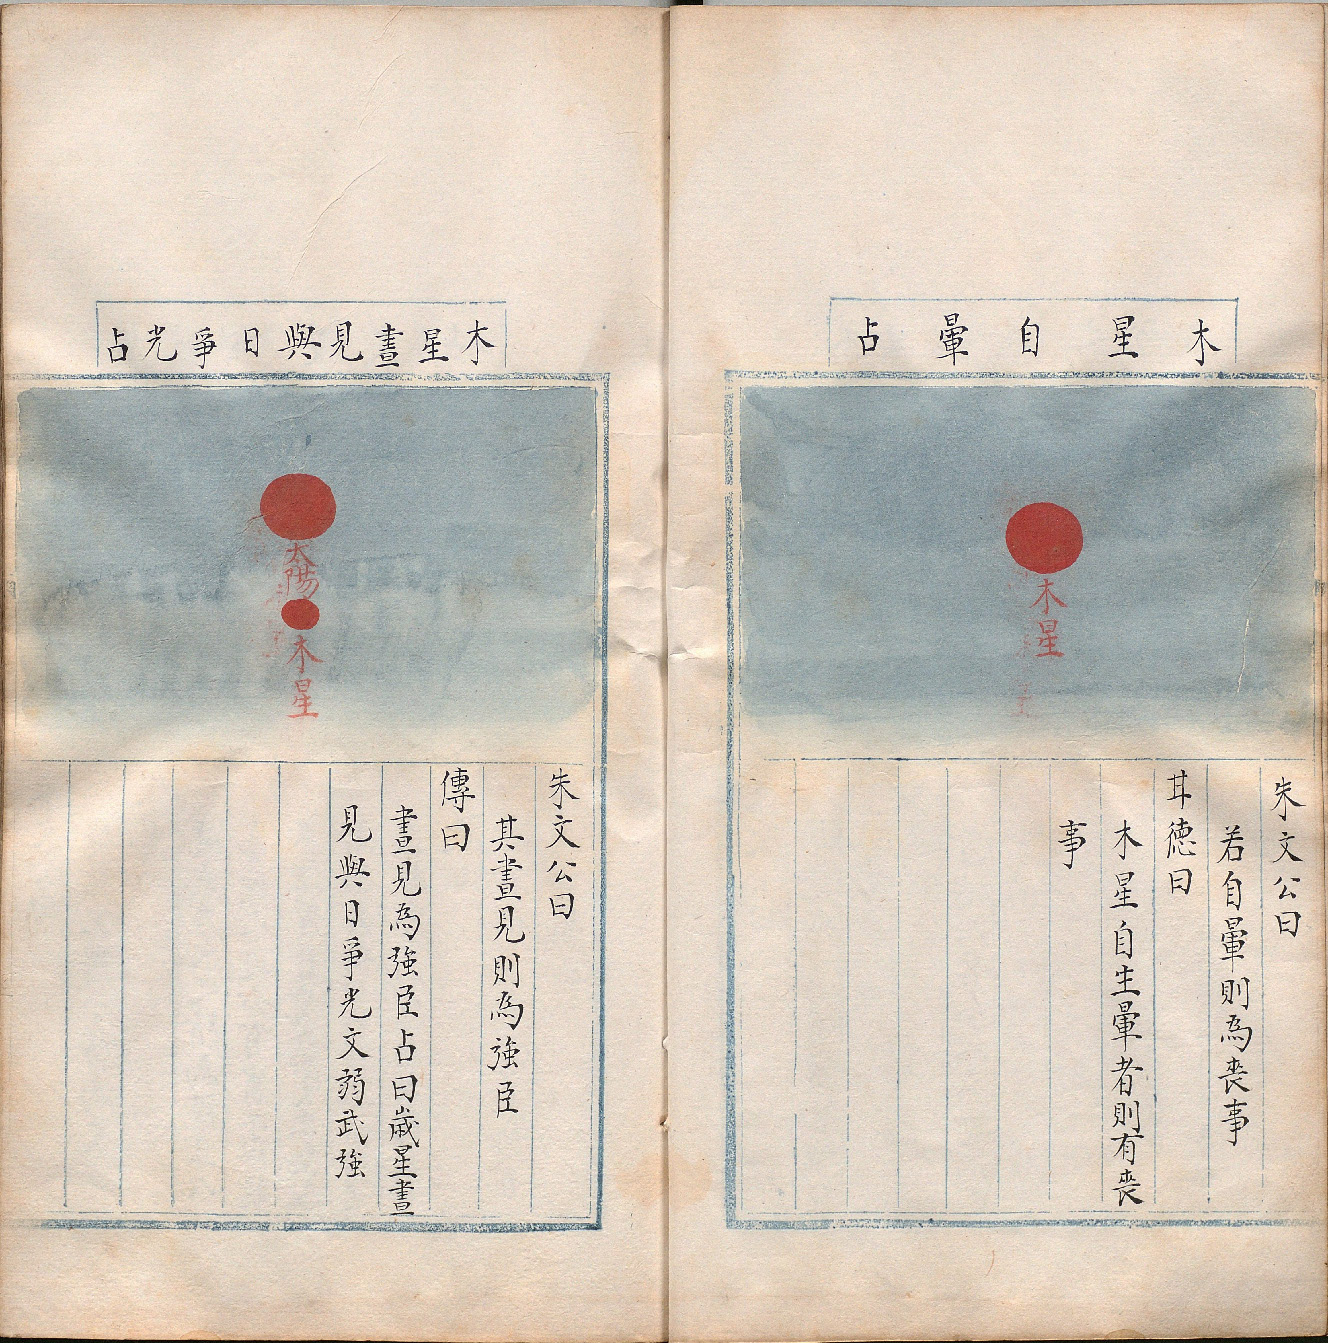 木星自暈占
木星
朱文公曰
若自暈則為喪事
耳徳曰
木星自生暈者則有喪
事
木星晝見與日爭光占
太陽
木星
朱文公曰
其晝見則為強臣
傳曰
晝見為強臣占曰歲星晝
見與日爭光文弱武強